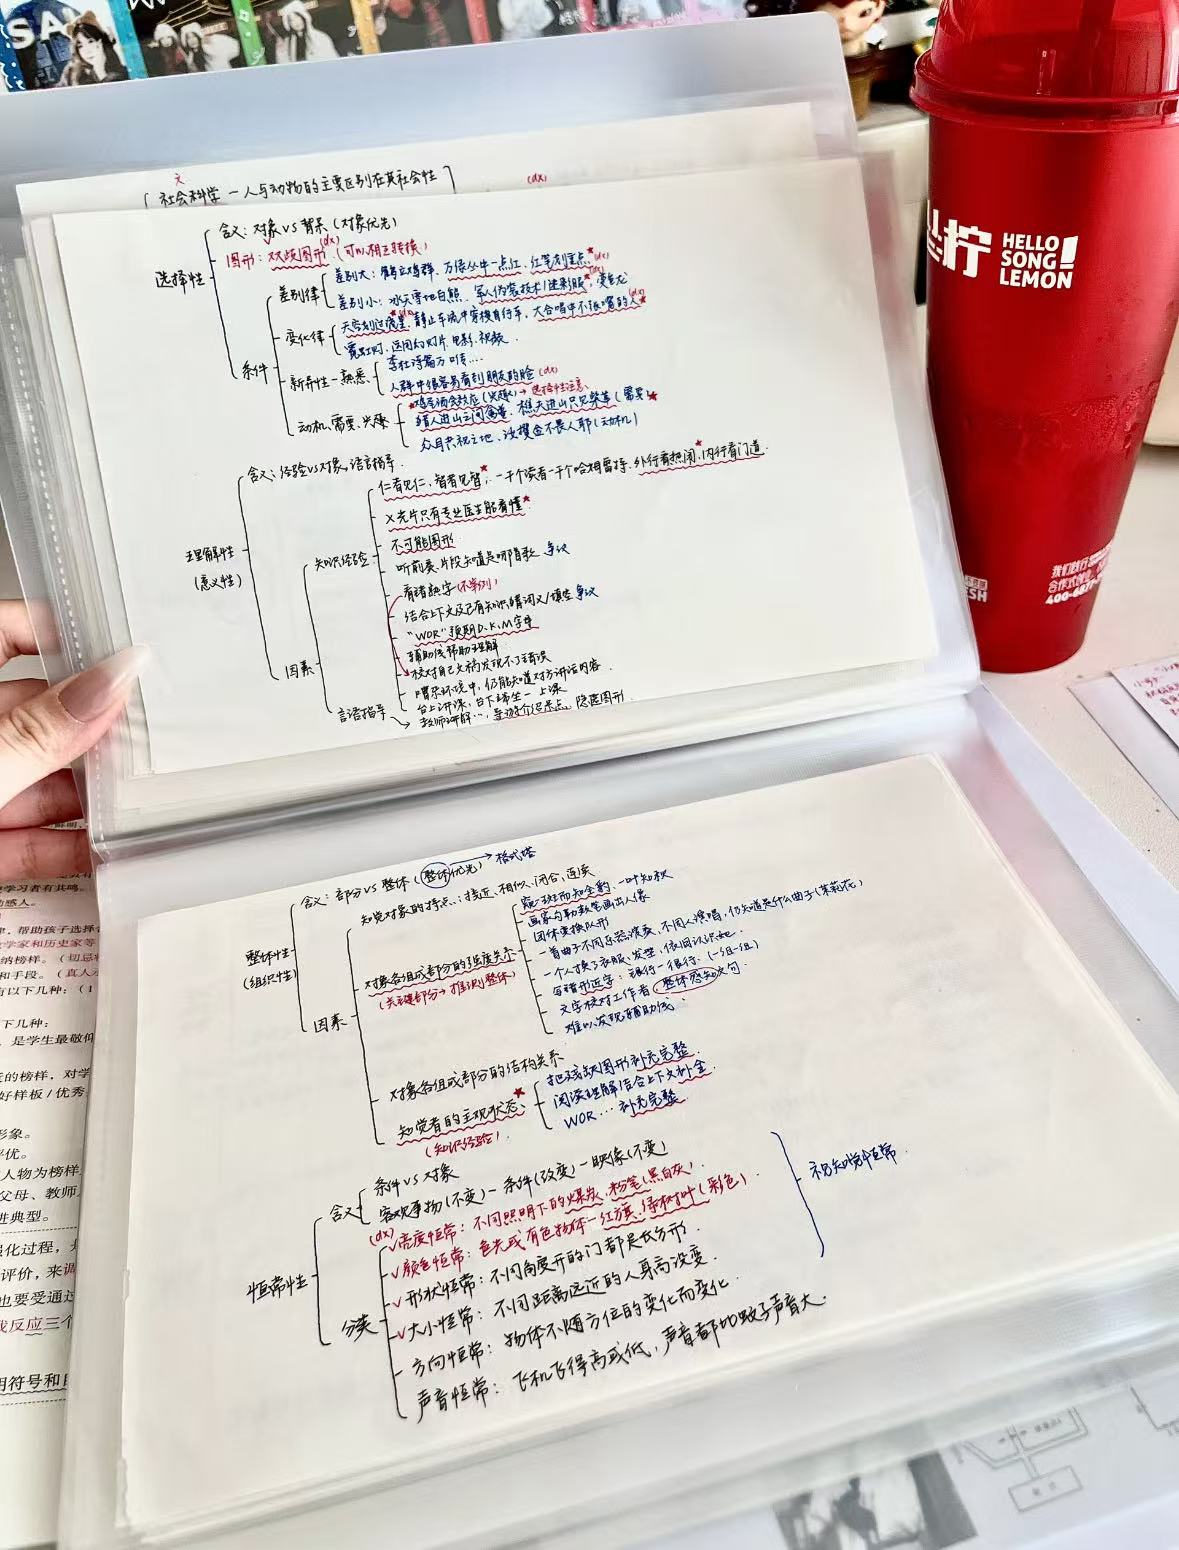 SA
文
社会科学 — 人与动物的主要区别在其社会性
(dx)
选择性
含义：对象VS背景（对象优先）
图形：双歧图形（可以相互转换）
(dx)
条件
差别律
差别大：鹤立鸡群，万绿丛中一点红，红笔划重点 (dx)
差别小：冰天雪地白熊，军人伪装技术/迷彩服，变色龙
(dx)
变化律
天空划过流星，静止车流中穿梭自行车，大合唱中不张嘴的人
霓虹灯，活动幻灯片，电影，视频。
新异性—熟悉
李杜诗篇万口传……
人群中很容易看到朋友的脸 (dx)
动机、需要、兴趣
鸡尾酒会效应（兴趣）→选择性注意
猎人进山只闻禽兽，樵夫进山只见柴草（需要）
众目共视之地，没摸金不畏人耶（动机）
理解性
（意义性）
含义：经验VS对象，语言指导．
因素
知识经验
仁者见仁，智者见智，一千个读者一千个哈姆雷特，外行看热闹，内行看门道
X光片只有专业医生能看懂
不可能图形
听前奏、片段知道是哪首歌 争议
看错熟字（不举例）
结合上下文及已有知识猜词义/填空 争议
"WOR"预期D、K、M字母
辅助线帮助理解
校对自己文稿发现不了错误
嘈杂环境中，仍能知道对方讲话内容．
言语指导
台上讲课，台下端坐—上课
教师讲解…，导游介绍景点，隐匿图形．
整体性
（组织性）
含义：部分VS整体（整体优先）→格式塔
因素
知觉对象的特点：接近、相似、闭合、连续
对象各组成部分的强度关系
（关键部分→推测整体）
窥一斑而知全豹，一叶知秋
画家勾勒数笔画出人像
团体变换队形
一首曲子不同乐器演奏、不同人演唱，仍知道是什么曲子（茉莉花）
一个人换了衣服、发型，依旧认识她．
写错形近字：银行—很行．（一组一组）
文字校对工作者（整体感知）次句
难以发现辅助线
对象各组成部分的结构关系
知觉者的主观状态
（知识经验）．
把残缺图形补充完整
阅读理解结合上下文补全
WOR…补充完整
恒常性
含义
条件VS对象
客观事物（不变）—条件（改变）—映像（不变）
分类
(dx)
亮度恒常：不同照明下的煤炭，粉笔（黑白灰）．
颜色恒常：色光或有色物体—红旗，绿树叶（彩色）
形状恒常：不同角度开的门都是长方形．
大小恒常：不同距离远近的人身高没变．
方向恒常：物体不随方位的变化而变化．
声音恒常：飞机飞得高或低，声音都比蚊子声音大．
视知觉恒常
柠
HELLO
SONG
LEMON!
我们践行
合作
400-6827
学习者有共鸣。
动感人。
帮助孩子选择
数学家和历史家等
纳榜样。（切忌
和手段。（真人
有以下几种：（1
下几种：
是学生最敬仰
的榜样，对学
好样板/优秀
形象。
评优。
人物为榜样
父母、教师
进典型。
强化过程，
评价，来调
也要受通过
我反应三个
用符号和